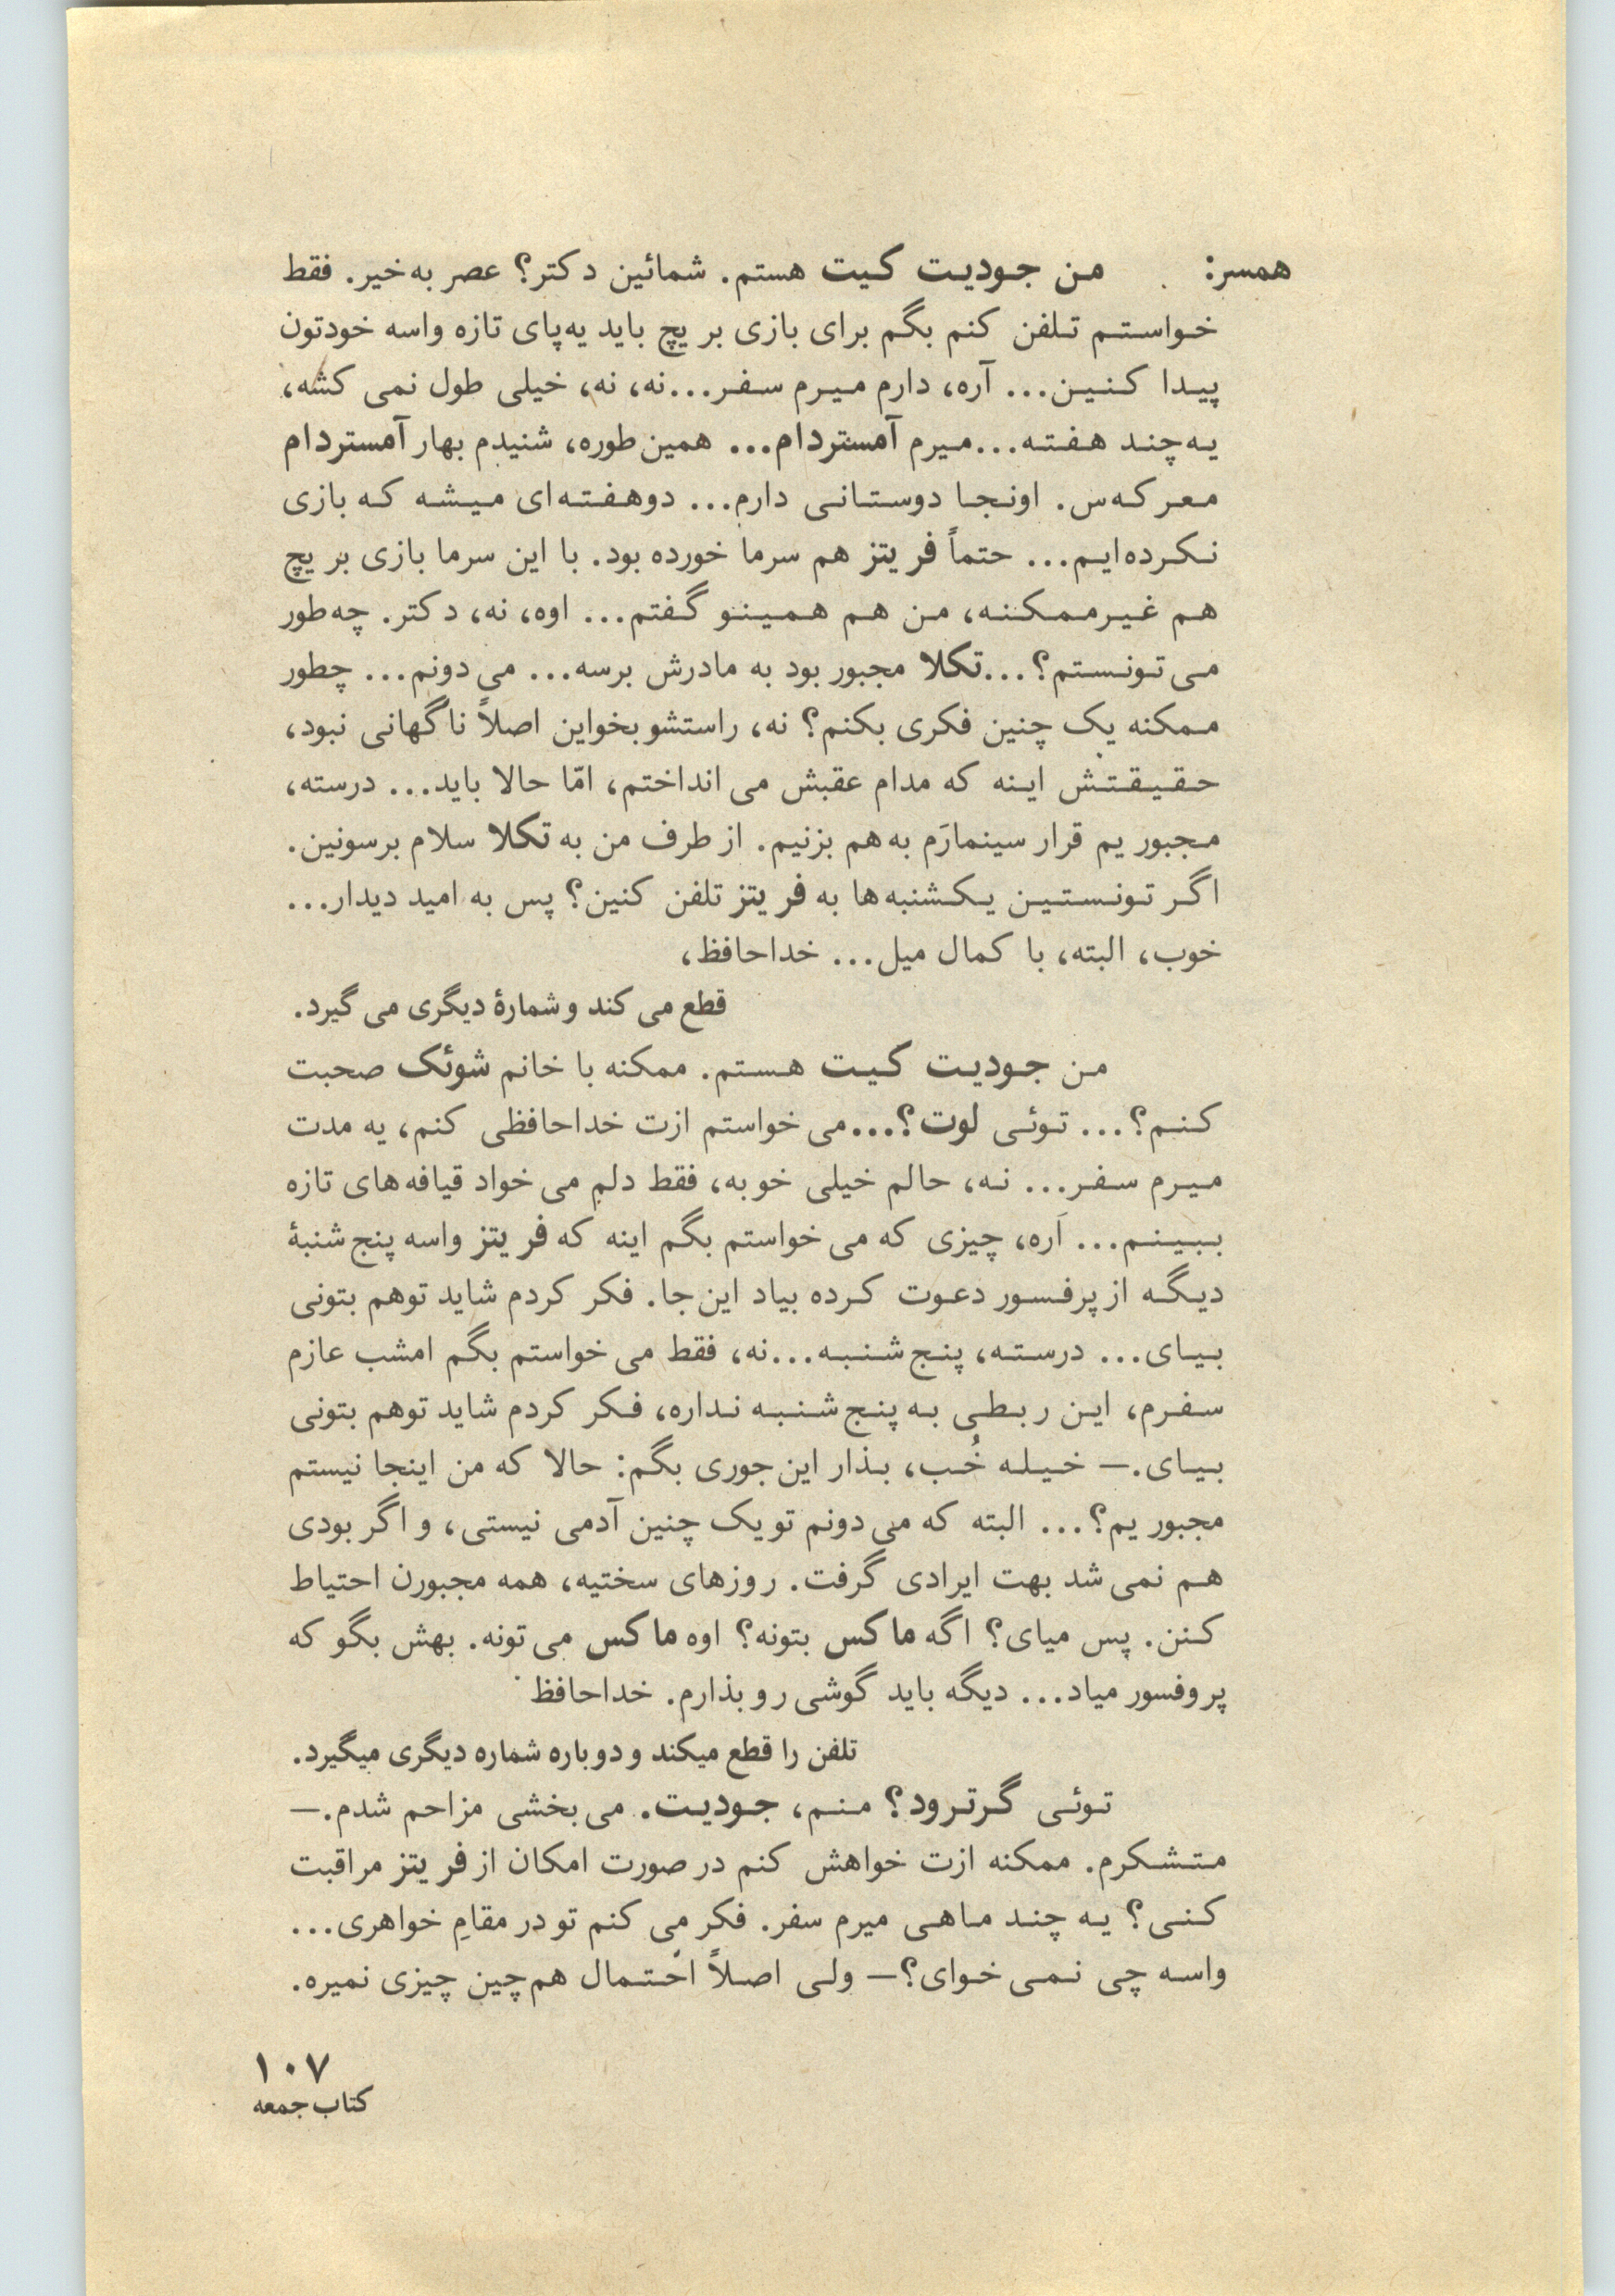 همسر: من جودیت کیت هستم. شمائین دکتر؟ عصر به‌خیر. فقط
خواستم تلفن کنم بگم برای بازی بریچ باید یه‌پای تازه واسه خودتون
پیدا کنین... آره، دارم میرم سفر...نه، نه، خیلی طول نمی کشه،
یه‌چند هفته...میرم آمستردام... همین‌طوره، شنیدم بهار آمستردام
معرکه‌س. اونجا دوستانی دارم... دوهفته‌ای میشه که بازی
نکرده‌ایم... حتماً فریتز هم سرما خورده بود. با این سرما بازی بریچ
هم غیرممکنه، من هم همینو گفتم... اوه، نه، دکتر. چه‌طور
می‌تونستم؟...تکلا مجبور بود به مادرش برسه... می دونم... چطور
ممکنه یک چنین فکری بکنم؟ نه، راستشو بخواین اصلاً ناگهانی نبود،
حقیقتش اینه که مدام عقبش می انداختم، امّا حالا باید... درسته،
مجبوریم قرار سینمارَم به‌هم بزنیم. از طرف من به تکلا سلام برسونین.
اگر تونستین یکشنبه‌ها به فریتز تلفن کنین؟ پس به امید دیدار...
خوب، البته، با کمال میل... خداحافظ،
قطع می کند و شمارهٔ دیگری می گیرد.
من جودیت کیت هستم. ممکنه با خانم شوئک صحبت
کنم؟... توئی لوت؟...می خواستم ازت خداحافظی کنم، یه مدت
میرم سفر... نه، حالم خیلی خوبه، فقط دلم می خواد قیافه‌های تازه
ببینم... آره، چیزی که می خواستم بگم اینه که فریتز واسه پنج‌شنبهٔ
دیگه از پرفسور دعوت کرده بیاد این‌جا. فکر کردم شاید توهم بتونی
بیای... درسته، پنج‌شنبه...نه، فقط می خواستم بگم امشب عازم
سفرم، این ربطی به پنج‌شنبه نداره، فکر کردم شاید توهم بتونی
بیای.— خیله خُب، بذار این‌جوری بگم: حالا که من اینجا نیستم
مجبوریم؟... البته که می دونم تو یک چنین آدمی نیستی، و اگر بودی
هم نمی شد بهت ایرادی گرفت. روزهای سختیه، همه مجبورن احتیاط
کنن. پس میای؟ اگه ماکس بتونه؟ اوه ماکس می تونه. بهش بگو که
پروفسور میاد... دیگه باید گوشی رو بذارم. خداحافظ
تلفن را قطع میکند و دوباره شماره دیگری میگیرد.
توئی گرترود؟ منم، جودیت. می بخشی مزاحم شدم.—
متشکرم. ممکنه ازت خواهش کنم در صورت امکان از فریتز مراقبت
کنی؟ یه چند ماهی میرم سفر. فکر می کنم تو در مقامِ خواهری...
واسه چی نمی خوای؟— ولی اصلاً احتمال هم‌چین چیزی نمیره.
۱۰۷
کتاب جمعه